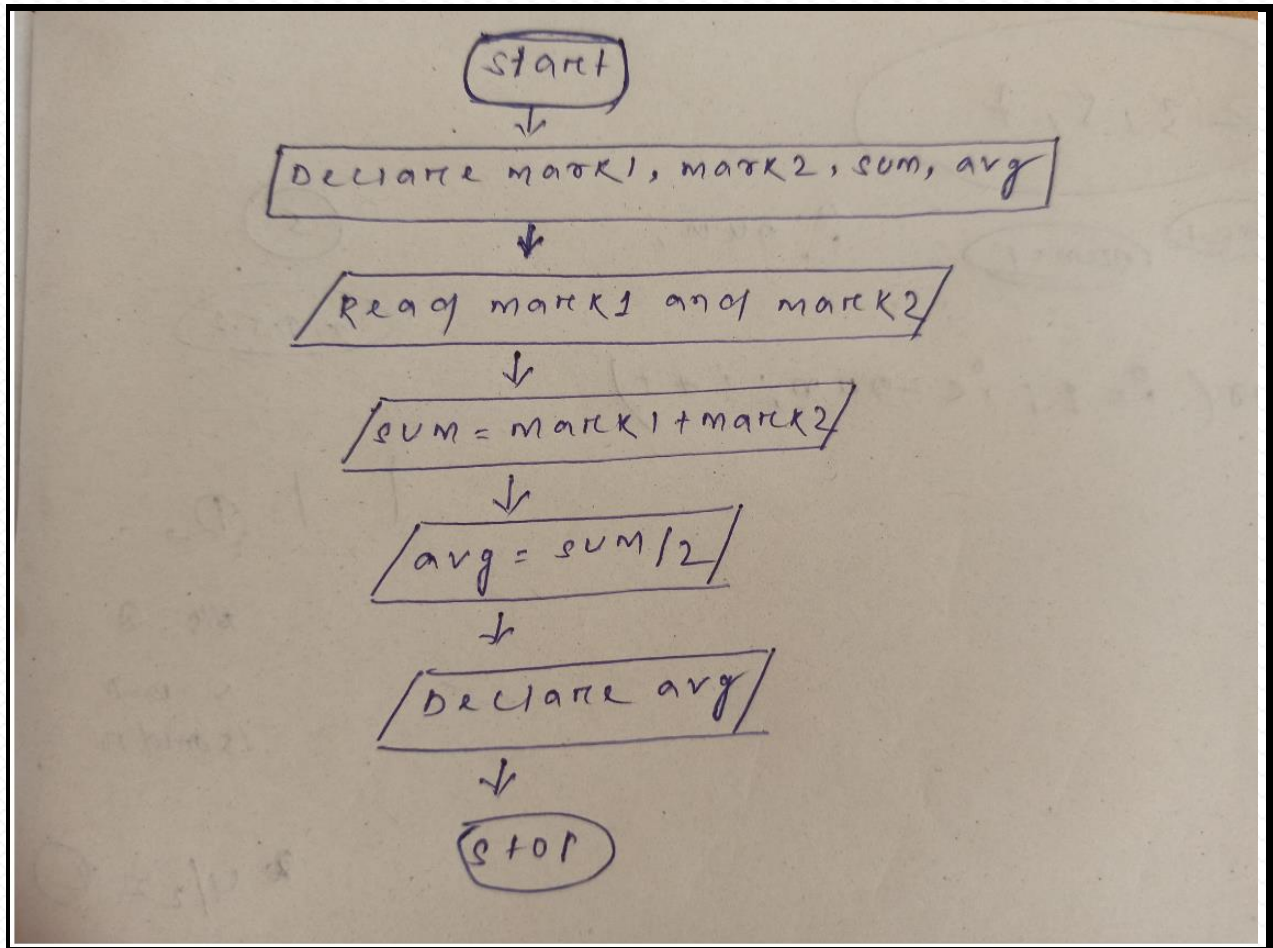 Start
Declare mark1, mark2, sum, avg
Read mark1 and mark2
sum = mark1 + mark2
avg = sum/2
Declare avg
Stop